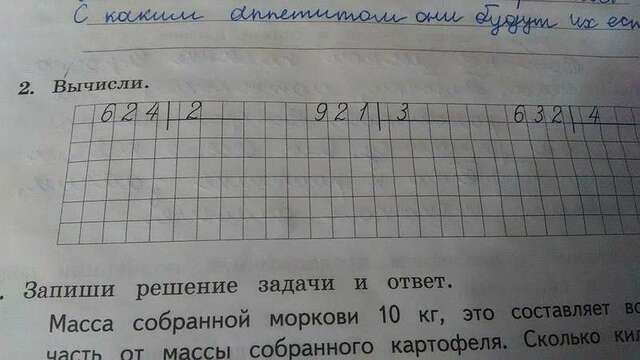 С каким аппетитом они будут их ест
2. Вычисли.
624 2 921 3 632 4
. Запиши решение задачи и ответ.
Масса собранной моркови 10 кг, это составляет во
часть от массы собранного картофеля. Сколько ки